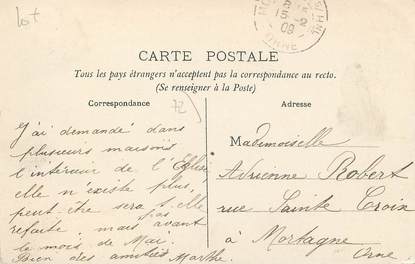 lot
15-2
09
ORNE
CARTE POSTALE
Tous les pays étrangers n'acceptent pas la correspondance au recto.
(Se renseigner à la Poste)
Correspondance
Adresse
J'ai demandé dans
plusieurs maisons
l'intérieur de l'Eglise,
elle n'existe plus,
peut-être sera t-elle
refaite, mais pas avant
le mois de Mai.
Bien des amitiés Marthe.
Mademoiselle
Adrienne Robert
rue Sainte Croix
à Mortagne
Orne